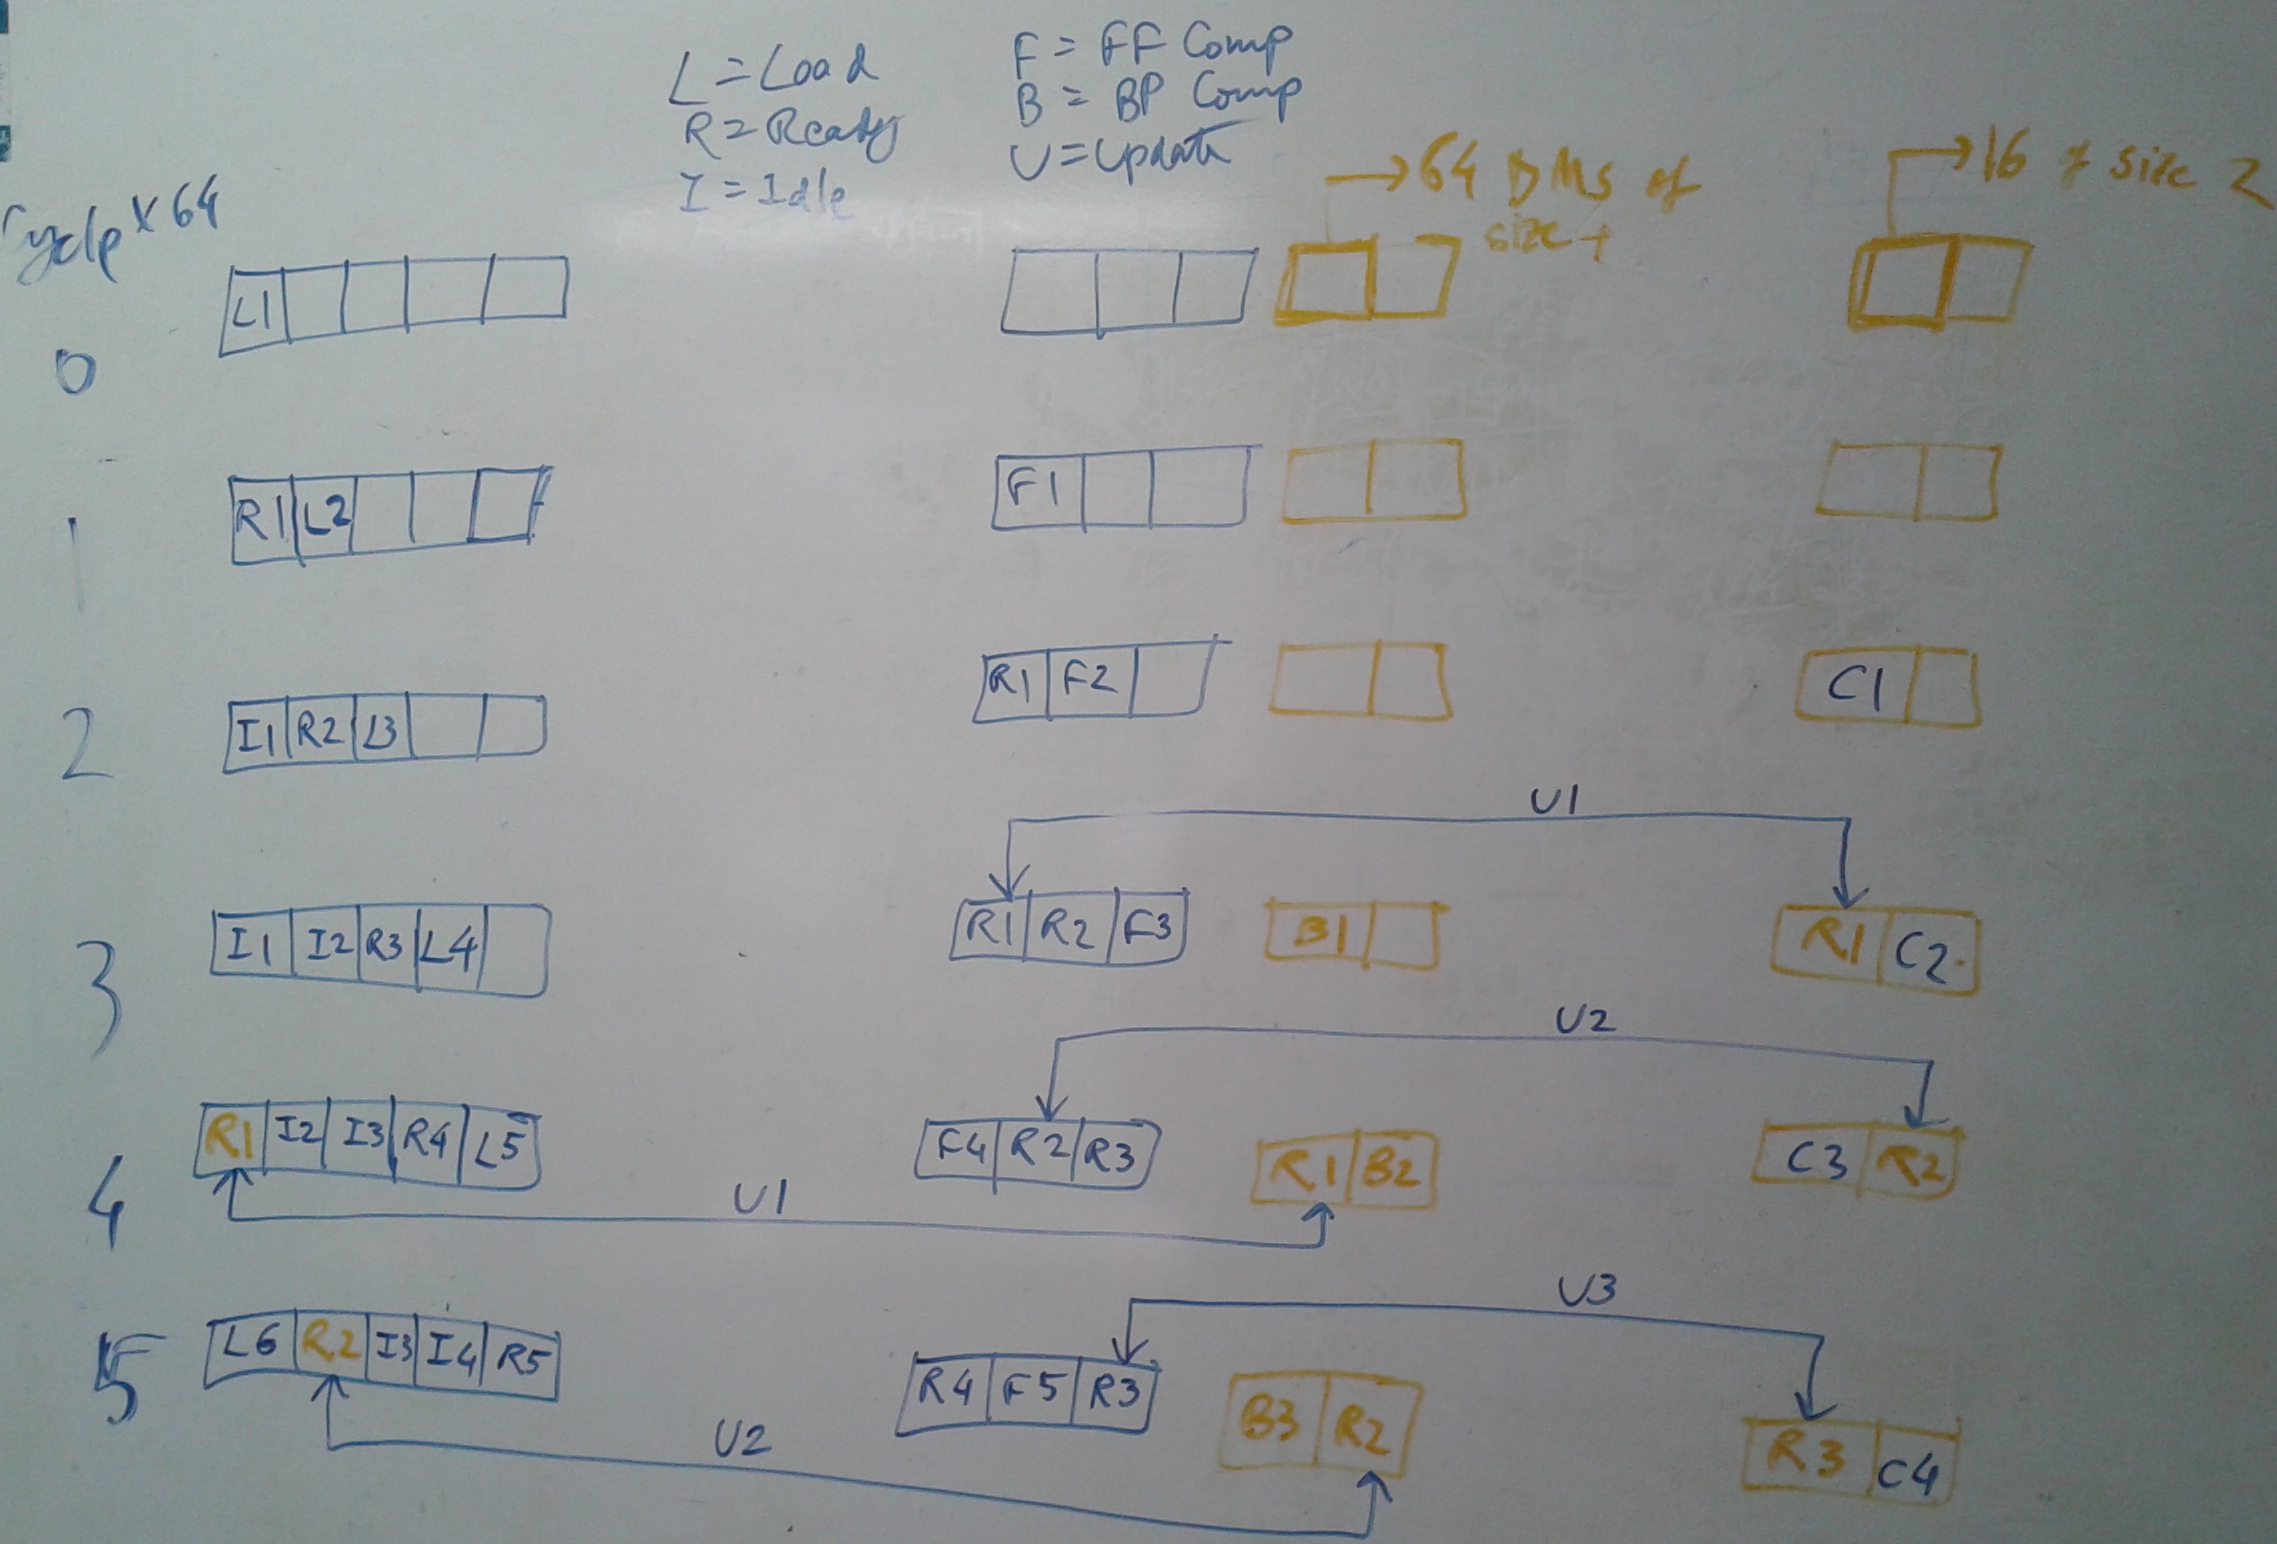 L = Load
R = Ready
I = Idle
F = FF Comp
B = BP Comp
U = Update
→ 64 DMs of
size 1
→ 16 of size 2
Cycle x 64
0
L1
1
R1 L2
F1
2
I1 R2 L3
R1 F2
C1
U1
3
I1 I2 R3 L4
R1 R2 F3
B1
R1 C2
U2
4
R1 I2 I3 R4 L5
F4 R2 R3
R1 B2
C3 R2
U1
U3
5
L6 R2 I3 I4 R5
R4 F5 R3
B3 R2
R3 C4
U2